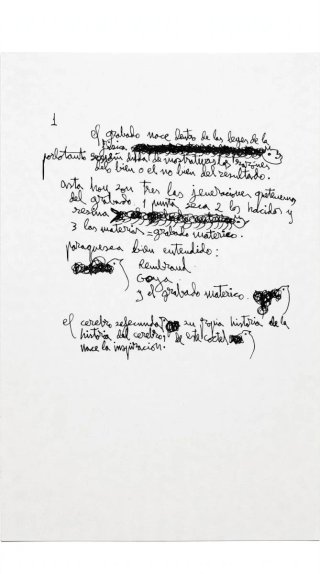 1
el grabado nace dentro de las leyes de la
física
portanto sin duda de mostrarlas las razones
dão bien o el no bien del resultado.
asta hoy son tres las jeneraciones que tenemos
del grabado, 1 punta seca 2 los hacidos y
resina
3 las materias = grabado materico.
para que sea bien entendido:
Rembrand
Goya
y el grabado materico.
el cerebro se fecunda en su propia historia de la
historia del cerebro, de este coctel
nace la inspiración.